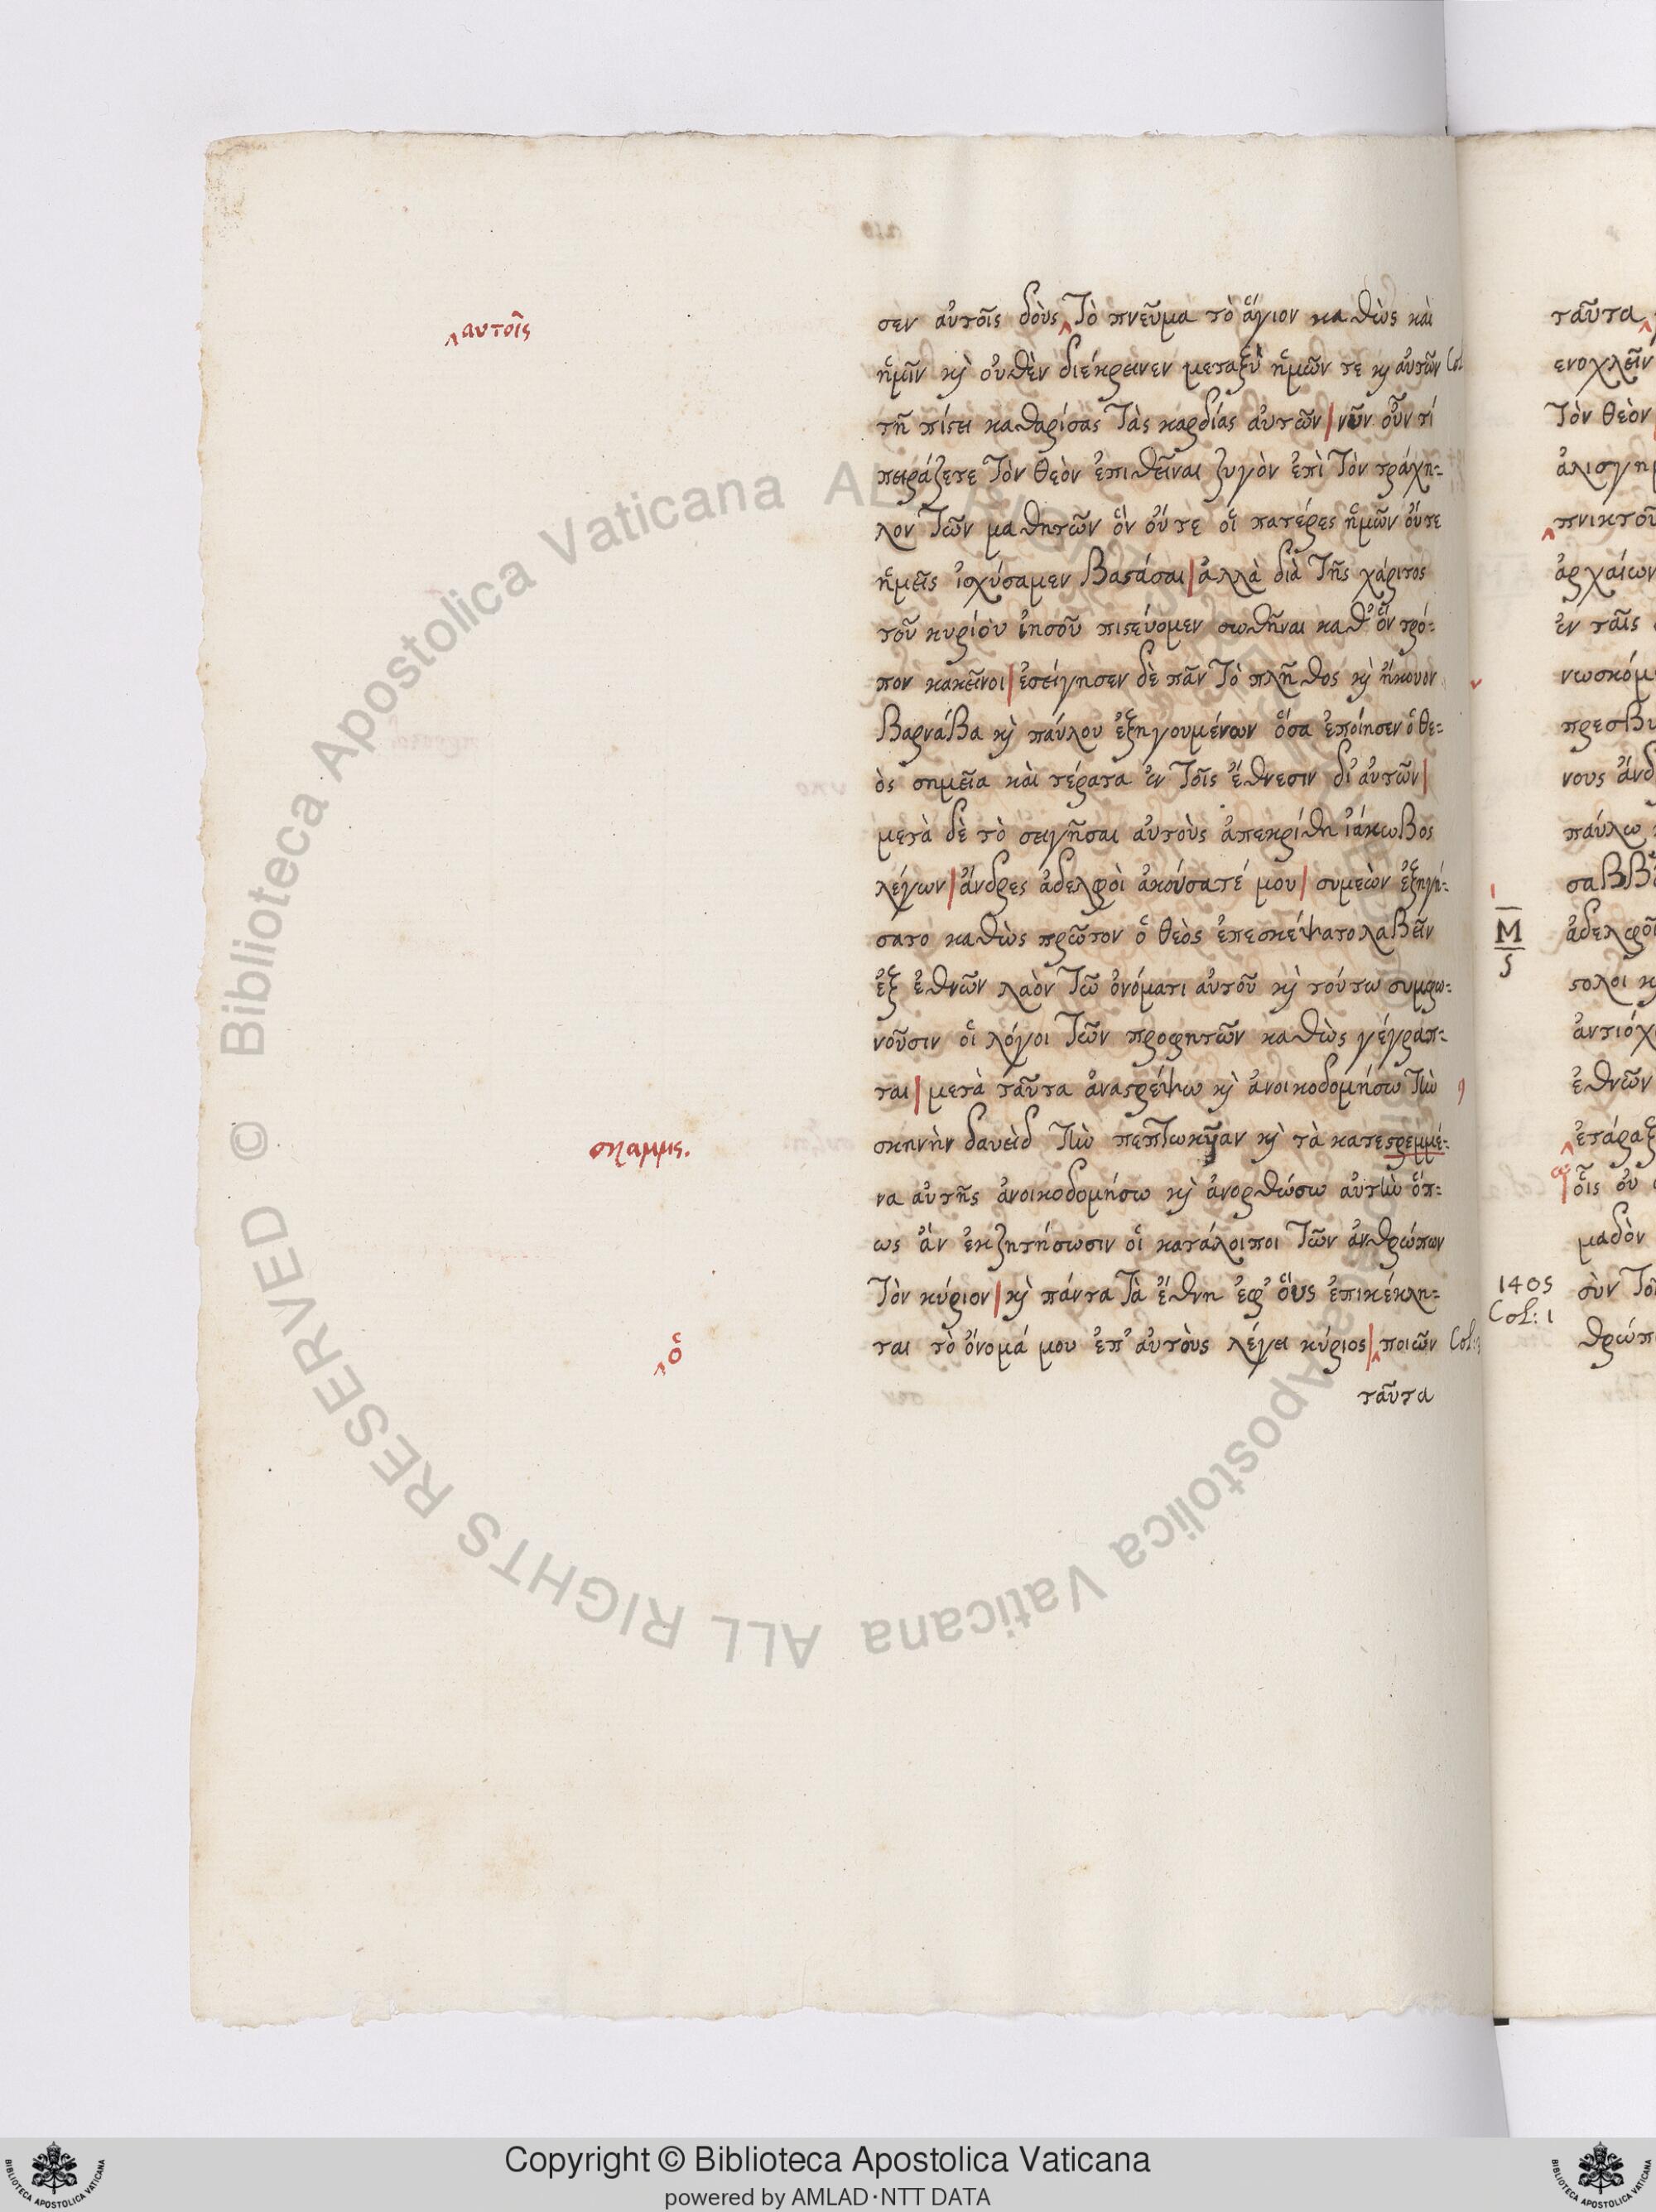 σεν αὐτοῖς δοὺς ‸ τὸ πνεῦμα τὸ ἅγιον καθὼς καὶ
‸ αυτοῖς
ἡμῖν κὶ οὐθὲν διέκρεινεν μεταξὺ ἡμῶν τε κὶ αὐτῶν Col
τῇ πίστει καθαρίσας τὰς καρδίας αὐτῶν | νῦν οὖν τί
πειράζετε τὸν θεὸν ἐπιθεῖναι ζυγὸν ἐπὶ τὸν τράχη-
λον τῶν μαθητῶν ὃν οὔτε οἱ πατέρες ἡμῶν οὔτε
ἡμεῖς ἰσχύσαμεν βαστάσαι | ἀλλὰ διὰ τῆς χάριτος
τοῦ κυρίου ἰησοῦ πιστεύομεν σωθῆναι καθ᾽ ὃν τρό-
πον κακεῖνοι | ἐσείγησεν δὲ πᾶν τὸ πλῆθος κὶ ἤκουον
βαρνάβα κὶ παύλου ἐξηγουμένων ὅσα ἐποίησεν ὁ θε-
ὸς σημεῖα καὶ τέρατα ἐν τοῖς ἔθνεσιν δι᾽ αὐτῶν |
μετὰ δὲ τὸ σειγῆσαι αὐτοὺς ἀπεκρίθη ἰάκωβος
λέγων | ἄνδρες ἀδελφοὶ ἀκούσατέ μου | συμεὼν ἐξηγή-
σατο καθὼς πρῶτον ὁ θεὸς ἐπεσκέψατο λαβεῖν
ἐξ ἐθνῶν λαὸν τῷ ὀνόματι αὐτοῦ κὶ τούτω συμφω-
νοῦσιν οἱ λόγοι τῶν προφητῶν καθὼς γέγραπ-
ται | μετὰ ταῦτα ἀναστρέψω κὶ ἀνοικοδομήσω τὴν
σκηνὴν δαυεὶδ τὴν πεπτωκυῖαν κὶ τὰ κατεστρεμμέ-
να αὐτῆς ἀνοικοδομήσω κὶ ἀνορθώσω αὐτὴν ὅπ-
ως ἂν ἐκζητήσωσιν οἱ κατάλοιποι τῶν ἀνθρώπων
τὸν κύριον | κὶ πάντα τὰ ἔθνη ἐφ᾽ οὓς ἐπικέκλη-
ται τὸ ὄνομά μου ἐπ᾽ αὐτοὺς λέγει κύριος | ‸ ποιῶν Col:
‸ ὁ
ταῦτα
ταῦτα ‸
ενοχλεῖν
τὸν θεὸν
‸ πνικτοῦ
ἀρχαίων
ἐν ταῖς
πρεσβυ
νους ἀνδ
παύλω
M
5
ἀδελφοὶ
στολοι κὶ
ἀντιόχ
ἐθνῶν
‸ ἐτάραξ
μαδὸν
1405
Col: 1
σὺν το
θρώπ
Copyright © Biblioteca Apostolica Vaticana
powered by AMLAD·NTT DATA
© Biblioteca Apostolica Vaticana ALL RIGHTS RESERVED